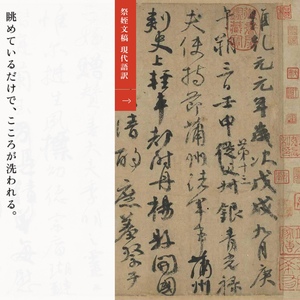 維乾元元年歲次戊戌九月庚
午朔三日壬申從父叔銀青光祿
第十三
夫使持節蒲州諸軍事蒲州
刺史上輕車都尉丹楊縣開國
清酌庶羞祭于
祭姪文稿 現代語訳
→
眺めているだけで、こころが洗われる。